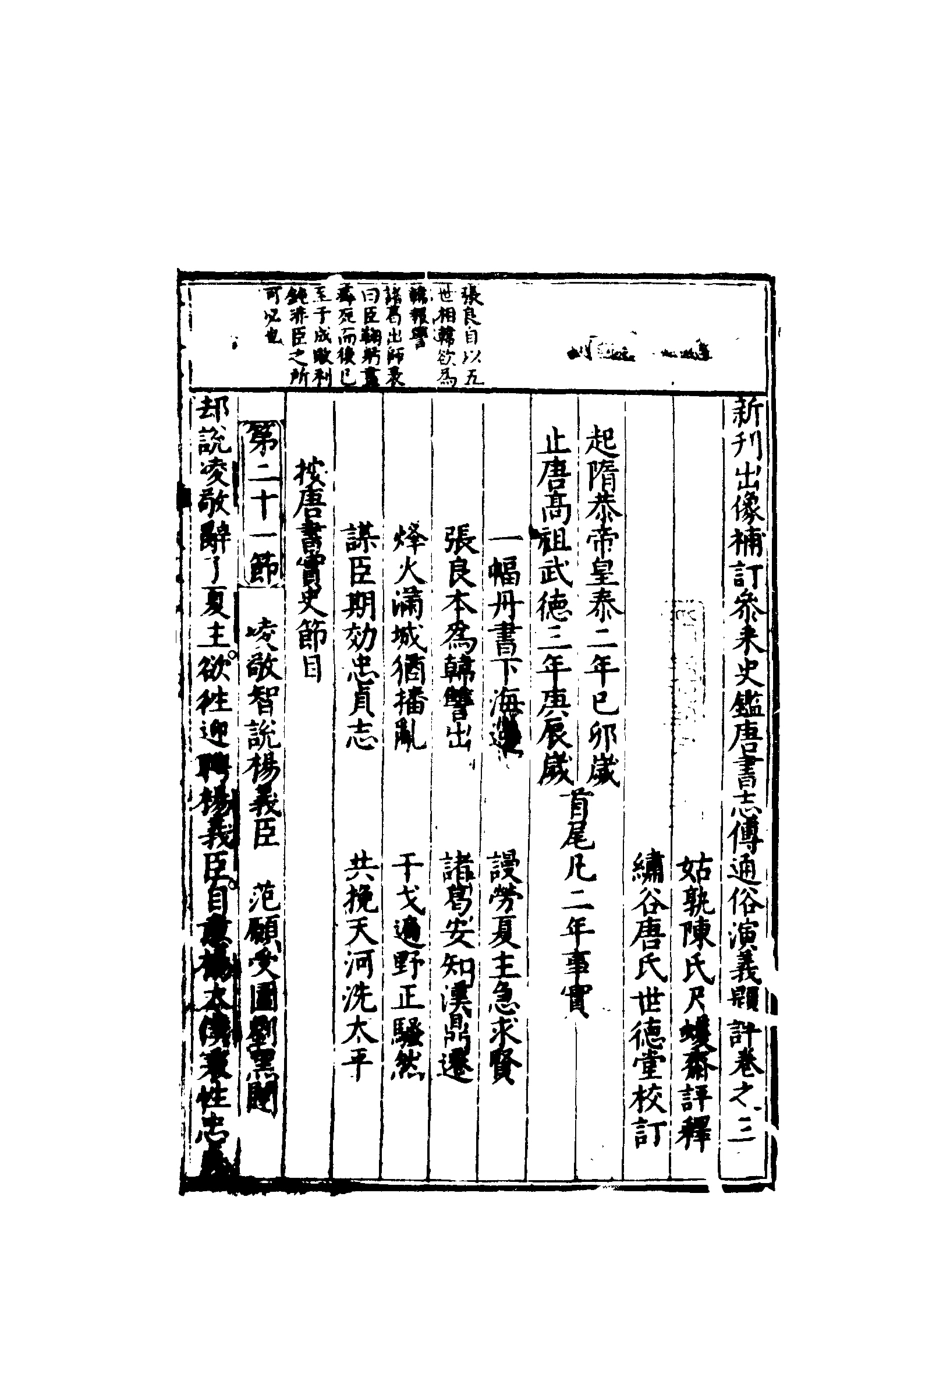 張良自以五
世相韓欲為
韓報讐
諸葛出師表
曰臣鞠躬盡
瘁死而後已
至于成敗利
鈍非臣之所
可必也
新刊出像補訂參釆史鑑唐書志傳通俗演義題評卷之三
姑孰陳氏尺蠖齋評釋
繡谷唐氏世德堂校訂
起隋恭帝皇泰二年已卯歲
止唐高祖武德三年庚辰歲
首尾凡二年事實
一幅丹書下海邊 謾勞夏主急求賢
張良本為韓讐出 諸葛安知漢鼎遷
烽火滿城猶播亂 干戈遍野正騷然
謀臣期効忠貞志 共挽天河洗太平
按唐書實史節目
第二十一節 凌敬智說楊義臣 范願受圍劉黑闥
却說凌敬辭了夏主欲徃迎聘楊義臣自思楊太僕秉性忠